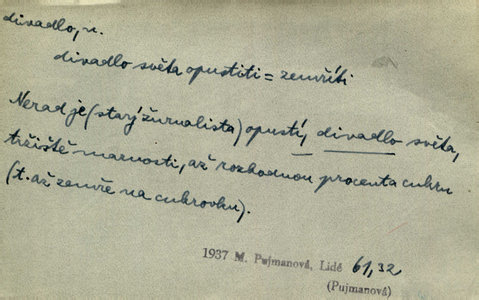 divadlo, n.
divadlo světa opustiti = zemříti
Nerad je (starý žurnalista) opustí, divadlo světa,
tržiště marnosti, až rozhodnou procenta cukru
(t. až zemře na cukrovku).
1937 M. Pujmanová, Lidé 61,32
(Pujmanová)